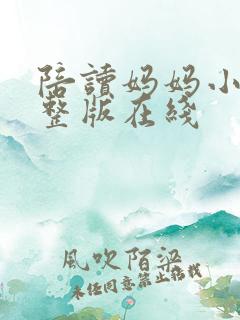 陪讀妈妈小
整版在綫
風吹陌梁
未经同意禁止转载